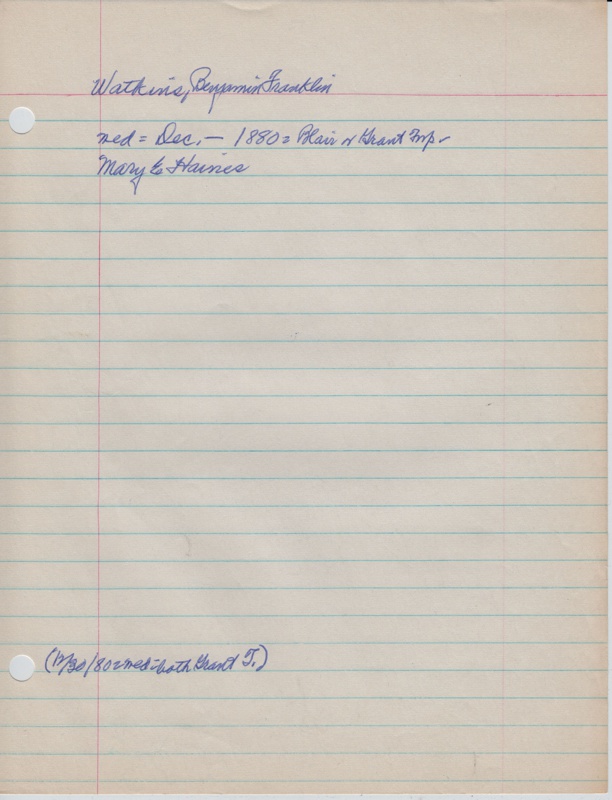 Watkins, Benjamin Franklin
med = Dec. — 1880 = Blair or Grant Twp -
Mary E Haines
(12/30/80 = med = both Grant T.)